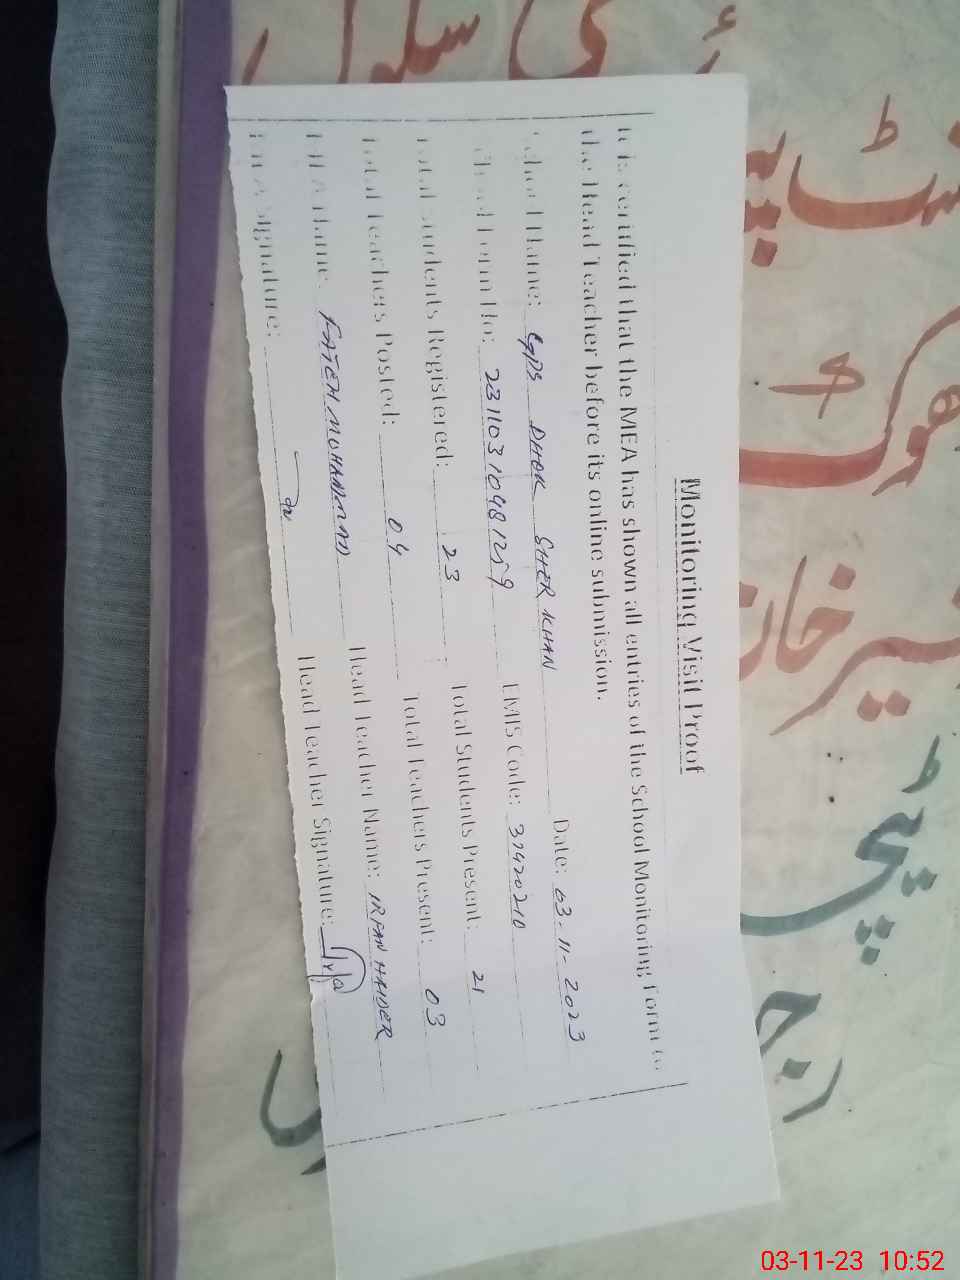 Monitoring Visit Proof
It is certified that the MEA has shown all entries of the School Monitoring Form to
the Head Teacher before its online submission.
School Name: GPS DHOK SHER KHAN Date: 03-11-2023
School Form No: 23110310481259 EMIS Code: 37420210
Total Students Registered: 23 Total Students Present: 21
Total Teachers Posted: 04 Total Teachers Present: 03
MEA Name: FATEH MOHAMMAD Head Teacher Name: IRFAN HAIDER
MEA Signature: Head Teacher Signature:
شیر خان
03-11-23 10:52